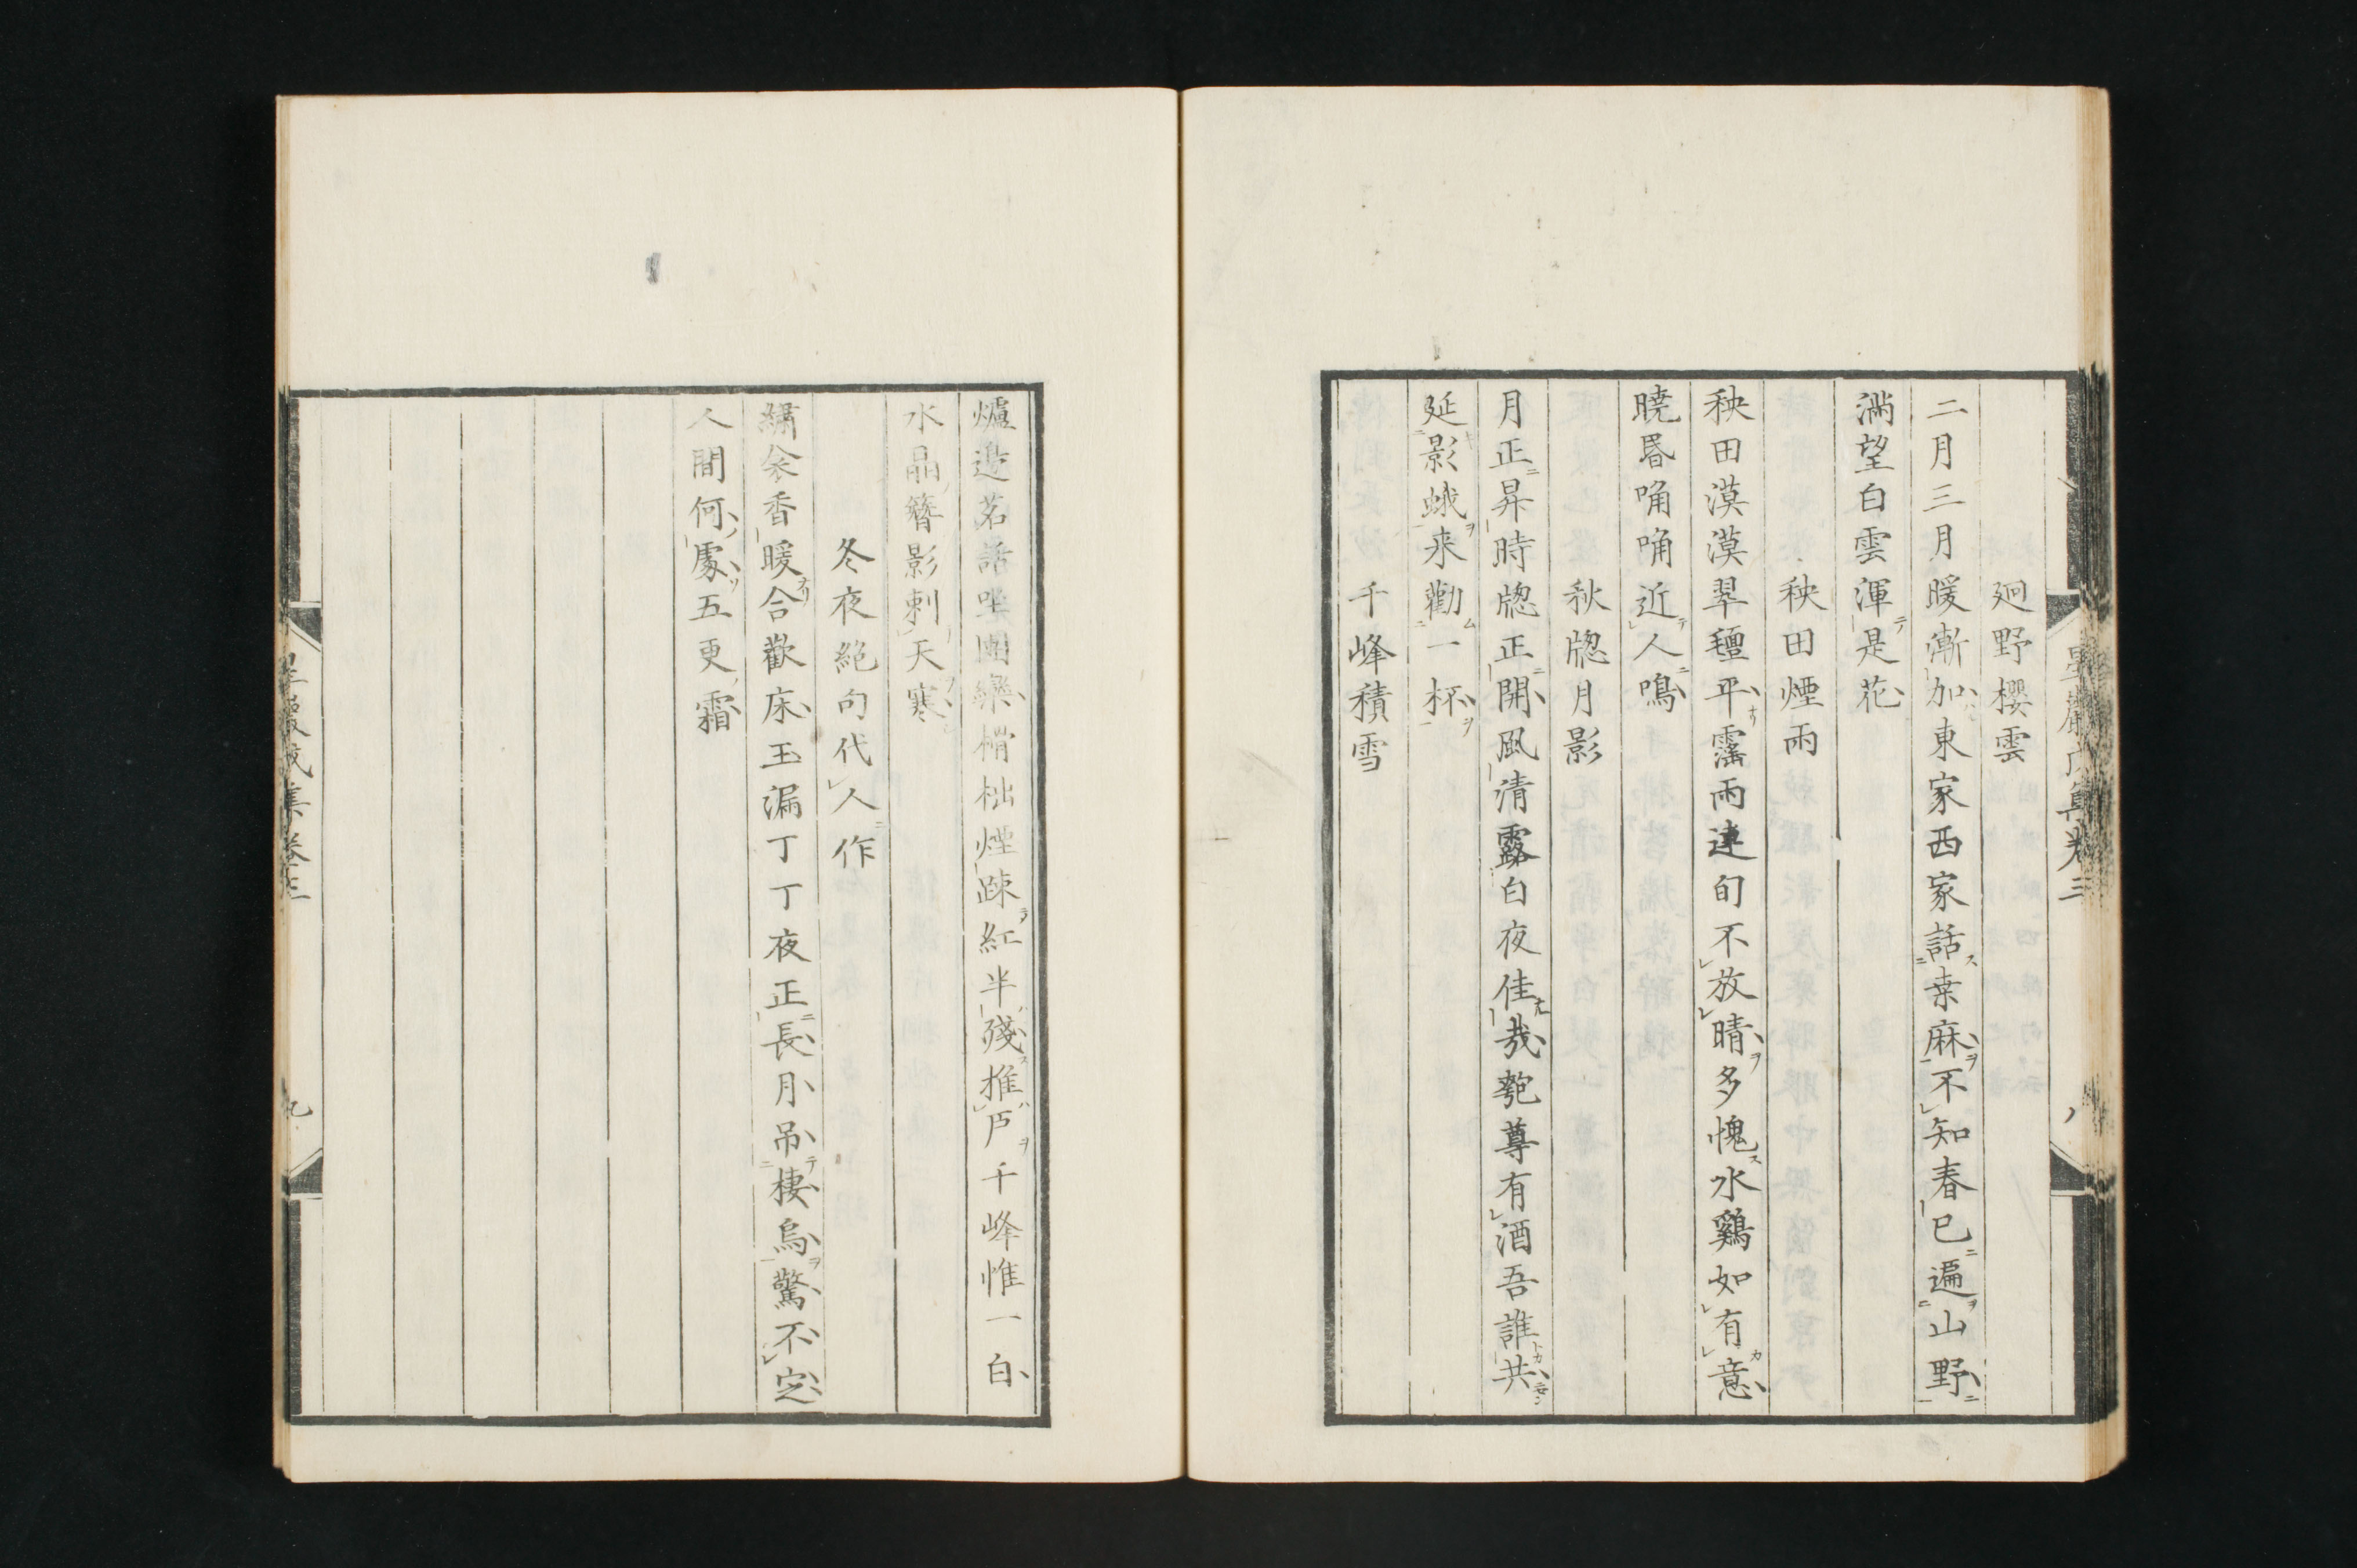 廻野櫻雲
二月三月暖漸加東家西家話桒麻不知春已遍山野
滿望白雲渾是花
秧田煙雨
秧田漠漠翠䆄平靄雨連旬不放晴多愧水鷄如有意
曉昏喃喃近人鳴
秋牕月影
月正昇時牕正開風清露白夜佳哉匏尊有酒吾誰共
延影蛾来勸一杯
千峰積雪
爐邊茗話坐團欒榾柮煙疎紅半殘推戶千峰惟一白
水晶簪影刺天寒
冬夜絕句代人作
繡衾香暖合歡床玉漏丁丁夜正長月吊棲烏驚不定
人間何處五更霜